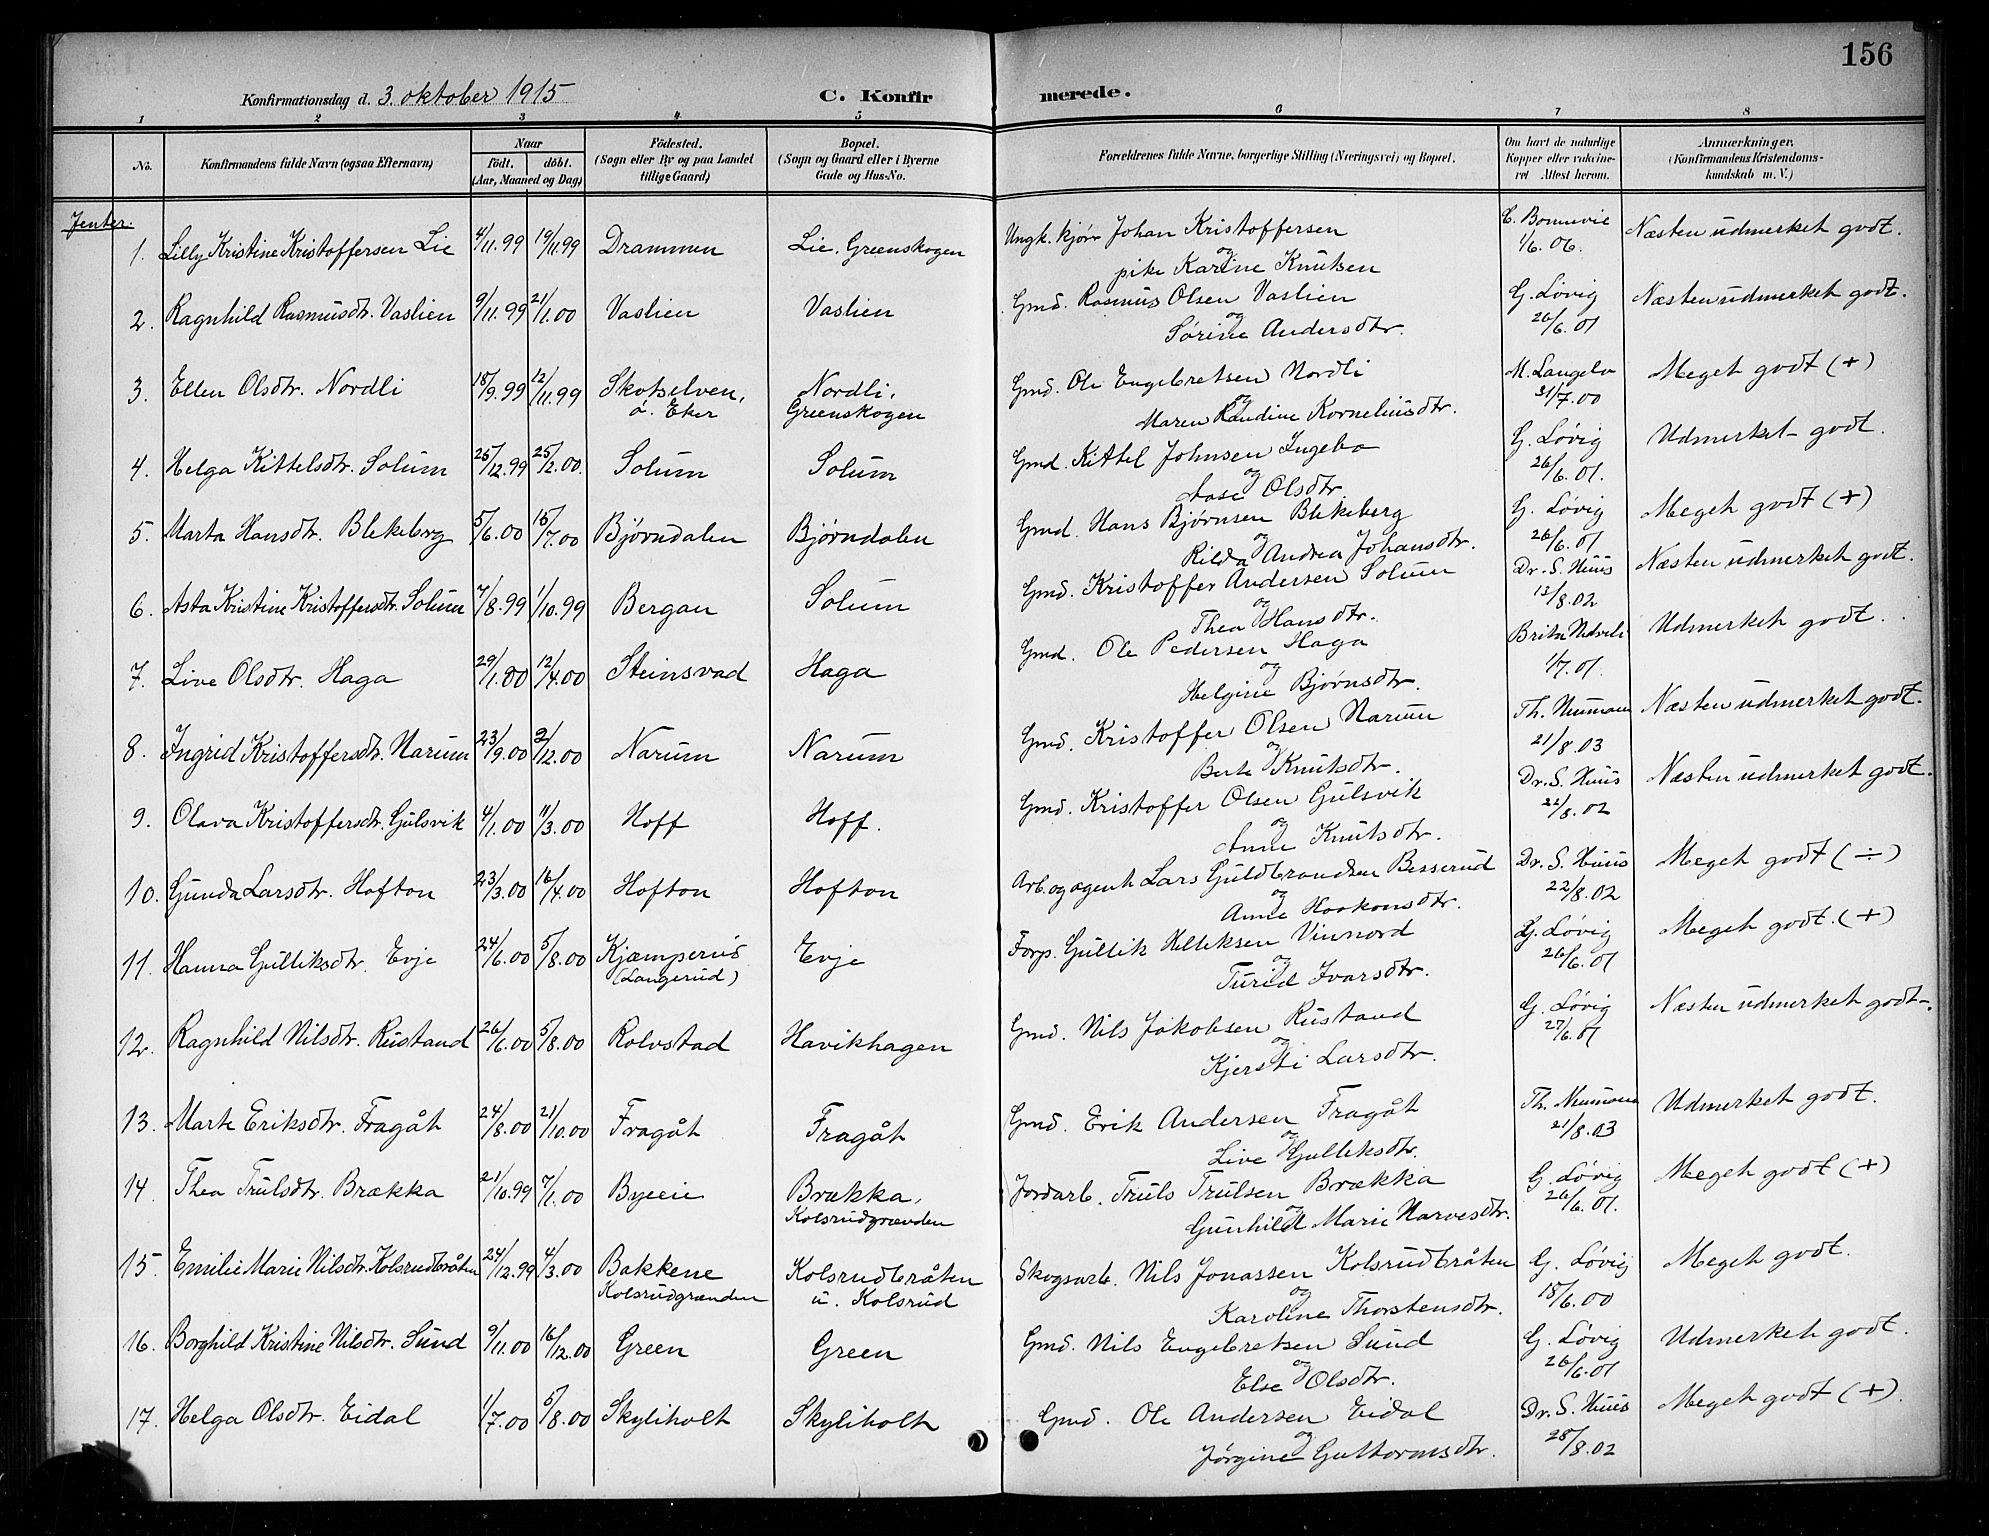 156
Konfirmationsdag d. 3. oktober 1915 C. Konfirmerede.
1 2 3 4 5 6 7 8
No. Konfirmandens fulde Navn (ogsaa Efternavn) Naar födt. döbt. (Aar, Maaned og Dag) Födested. (Sogn eller By og paa Landet tillige Gaard) Bopæl. (Sogn og Gaard eller i Byerne Gade og Hus-No. Forældrenes fulde Navne, borgerlige Stilling (Næringsvei) og Bopæl. Om havt de naturlige Kopper eller vaccineret Attest herom. Anmærkninger. (Konfirmandens Kristendomskundskab m. V.)
Jenter.
1. Lilly Kristine Kristoffersen Lie 4/11.99 19/11.99 Drammen Lie, Greenskogen Ungk. kjørr Johan Kristoffersen C. Bonnevie Næsten udmerket godt.
og pike Karine Knutsen 1/6.06.
2. Ragnhild Rasmusdtr. Vaslien 9/11.99 21/1.00 Vaslien Vaslien Gmd. Rasmus Olsen Vaslien G. Løvig Næsten udmerket godt.
og Sørine Andersdtr. 26/6.01
3. Ellen Olsdtr. Nordli 18/9.99 12/11.99 Skotselven, ø. Eker Nordli, Greenskogen Gmd. Ole Engebretsen Nordli M. Langebo Meget godt (+)
og Maren Randine Kornelius dtr. 31/7.00
4. Helga Kittelsdtr. Solum 25/12.99 25/2.00. Solum Solum Gmd. Kittel Johnsen Ingebo G. Løvig Udmerket godt.
og Aase Olsdtr. 26/6.01.
5. Marta Hansdtr. Blekeberg 5/6.00 15/7.00 Bjørndalen Bjørndalen Gmd. Hans Bjørnsen Blekeberg G. Løvig Meget godt (+)
og Rilda Andrea Johansdtr. 26/6.01
6. Asta Kristine Kristoffersdtr. Solum 7/8.99 1/10.99 Bergan Solum Gmd. Kristoffer Andersen Solum Dr. S. Huus Næsten udmerket godt.
og Thea Hansdtr. 13/8.02
7. Live Olsdtr. Haga 29/1.00 12/4.00 Steinsvad Haga Gmd. Ole Pedersen Haga Udmerket godt.
og Helgine Bjørnsdtr. 1/7.01.
8. Ingrid Kristoffersdtr. Narum 23/9.00 2/12.00 Narum Narum Gmd. Kristoffer Olsen Narum Th. Neumann Næsten udmerket godt.
og Berte Knutsdtr. 21/8.03
9. Olava Kristoffersdtr. Gulsvik 4/1.00 11/3.00 Hoff Hoff. Gmd. Kristoffer Olsen Gulsvik Dr. S. Huus Næsten udmerket godt.
og Anne Knutsdtr. 22/8.02
10. Gunda Larsdtr. Hofton 23/3.00 16/4.00 Hofton Hofton Arb. og agent Lars Guldbrandsen Besserud Dr. S. Huus Meget godt (÷)
og Anne Haakonsdtr. 22/8.02
11. Hanna Gulliksdtr. Evje 24/6.00 5/8.00 Kjæmperud (Langerud) Evje Forp. Gullik Helleksen Vinnord G. Løvig Meget godt. (+)
og Turid Ivarsdtr. 26/6.01
12. Ragnhild Nilsdtr. Rustand 26/6.00 5/8.00 Rolvstad Havikhagen Gmd. Nils Jakobsen Rustand G. Løvig Næsten udmerket godt.
og Kjersti Larsdtr. 27/6.01
13. Marte Eriksdtr. Fragåt 24/8.00 21/10.00 Fragåt Fragåt Gmd. Erik Andersen Fragåt Th. Neumann Udmerket godt.
og Live Gulliksdtr. 21/8.03
14. Thea Trulsdtr. Brækka 21/10.99 7/1.00 Byeie Brækka, Kolsrudgrænden Jordarb. Truls Trulsen Brækka G. Løvig Meget godt (+)
og Gunhild Marie Narvesdtr. 26/6.01.
15. Emilie Marie Nilsdtr. Kolsrudbråten 24/12.99 4/3.00 Bakkene Kolsrudgrænden Kolsrudbråten u. Kolsrud Skogsarb. Nils Jonassen Kolsrudbråten G. Løvig Meget godt.
og Karoline Thorstensdtr. 18/6.00
16. Borghild Kristine Nilsdtr. Sund 9/11.00 16/12.00 Green Green Gmd. Nils Engebretsen Sund G. Løvig Udmerket godt.
og Else Olsdtr. 26/6.01
17. Helga Olsdtr. Eidal 1/7.00 5/8.00 Skyliholt Skyliholt Gmd. Ole Andersen Eidal Dr. S. Huus Meget godt (+)
og Jørgine Guttormsdtr. 28/8.02